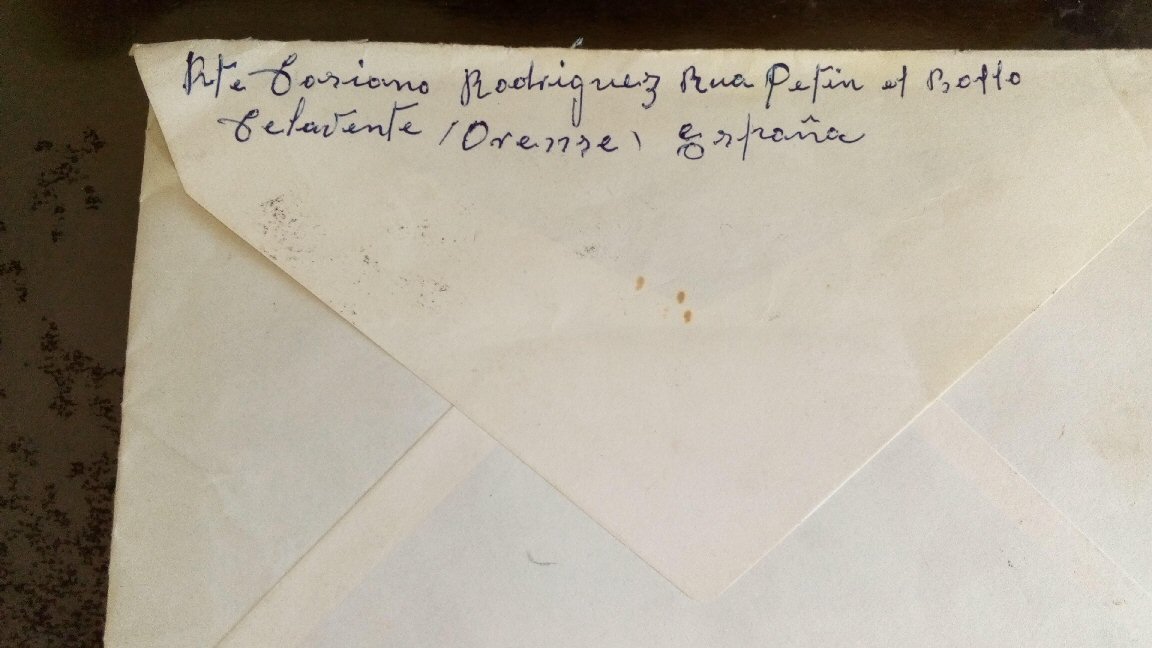 Rte Cosiano Rodriguez Rua Petin el Bollo
Celavente (Orense) España